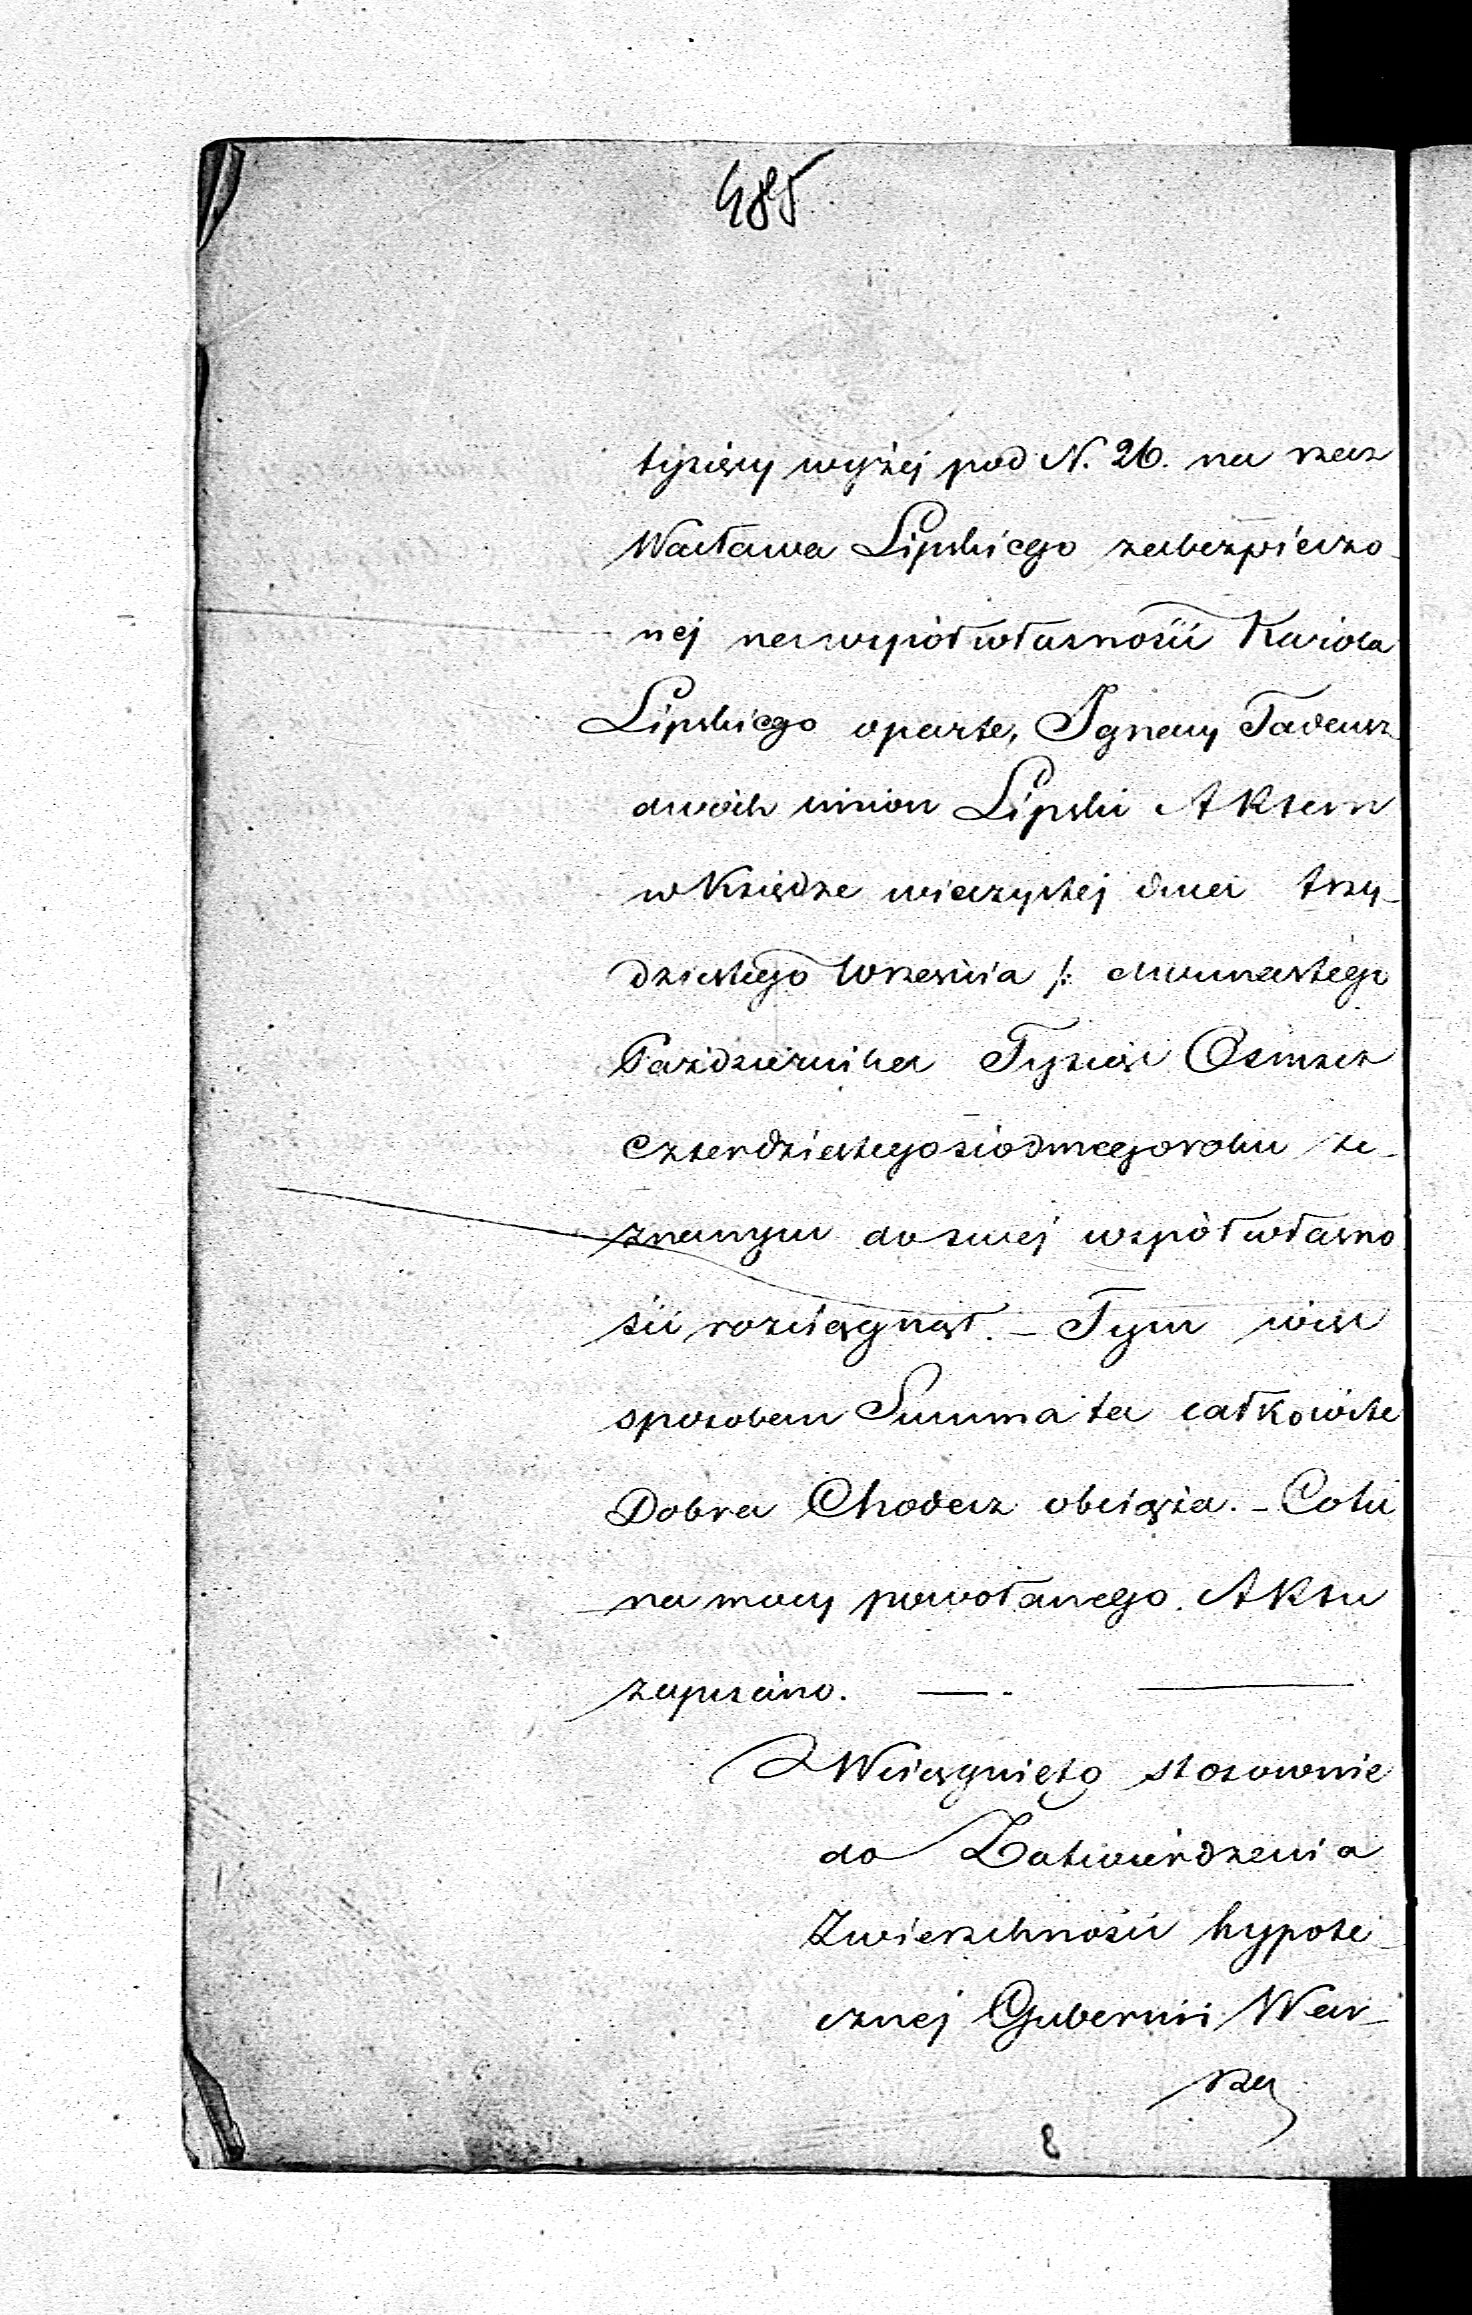 485
tysięcy wyżej pod N. 26. na rzecz
Wacława Lipskiego zabezpieczo-
nej na współwłasności Karola
Lipskiego oparte, Ignacy Tadeusz
dwóch imion Lipski Aktem
w Księdze wieczystej dnia trzy-
dziestego Września /: dwunastego
Października Tysiąc Ośmset
Czterdziestego siodmego roku ze-
znanym do swej współwłasno
ści rozciągnął. – Tym więc
sposobem Summa ta całkowite
Dobra Chodecz obciąża. – Co tu
na mocy powołanego Aktu
zapisano. —
Wciągnięto stosownie
do Zatwierdzenia
Zwierzchności hypote-
cznej Gubernii War-
sza
8